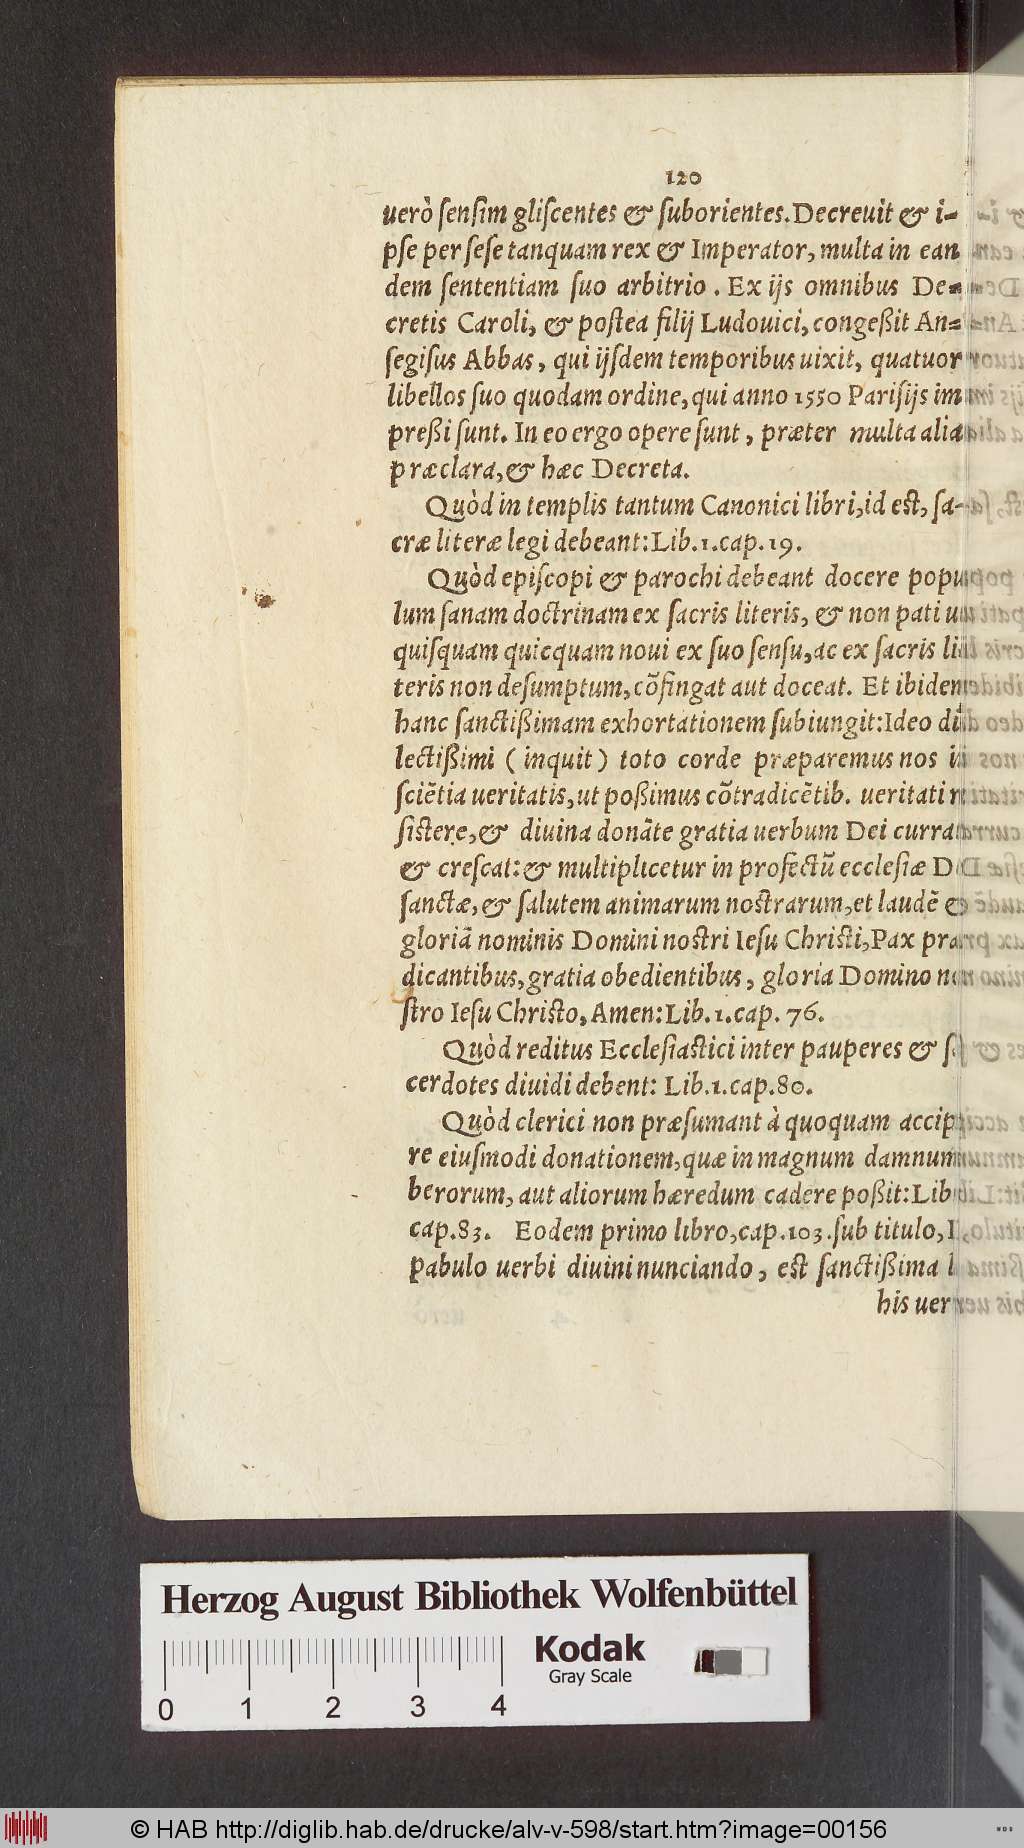 120
uerò ſenſim gliſcentes & ſuborientes. Decreuit & i-
pſe per ſeſe tanquam rex & Imperator, multa in ean
dem ſententiam ſuo arbitrio. Ex ijs omnibus De=
cretis Caroli, & poſtea filij Ludouici, congeßit An=
ſegiſus Abbas, qui ijſdem temporibus uixit, quatuor
libellos ſuo quodam ordine, qui anno 1550 Pariſijs im
preßi ſunt. In eo ergo opere ſunt, præter multa alia
præclara, & hæc Decreta.
Quòd in templis tantum Canonici libri, id est, ſa-
cræ literæ legi debeant: Lib. 1. cap. 19.
Quòd epiſcopi & parochi debeant docere popu
lum ſanam doctrinam ex ſacris literis, & non pati
quiſquam quicquam noui ex ſuo ſenſu, ac ex ſacris li
teris non deſumptum, cõfingat aut doceat. Et ibidem
hanc ſanctißimam exhortationem ſubiungit: Ideo di
lectißimi (inquit) toto corde præparemus nos
ſciẽtia ueritatis, ut poßimus cõtradicẽtib. ueritati
ſiſtere, & diuina donãte gratia uerbum Dei currat
& creſcat: & multiplicetur in profectũ eccleſiæ D
ſanctæ, & ſalutem animarum nostrarum, et laudẽ &
gloriã nominis Domini nostri Ieſu Christi, Pax præ
dicantibus, gratia obedientibus, gloria Domino no
ſtro Ieſu Christo, Amen: Lib. 1. cap. 76.
Quòd reditus Eccleſiastici inter pauperes & ſa
cerdotes diuidi debent: Lib. 1. cap. 80.
Quòd clerici non præſumant à quoquam accip
re eiuſmodi donationem, quæ in magnum damnum
berorum, aut aliorum hæredum cadere poßit: Lib
cap. 83. Eodem primo libro, cap. 103. ſub titulo,
pabulo uerbi diuini nunciando, est ſanctißima
his uer
Herzog August Bibliothek Wolfenbüttel
Kodak
Gray Scale
0 1 2 3 4
© HAB http://diglib.hab.de/drucke/alv-v-598/start.htm?image=00156